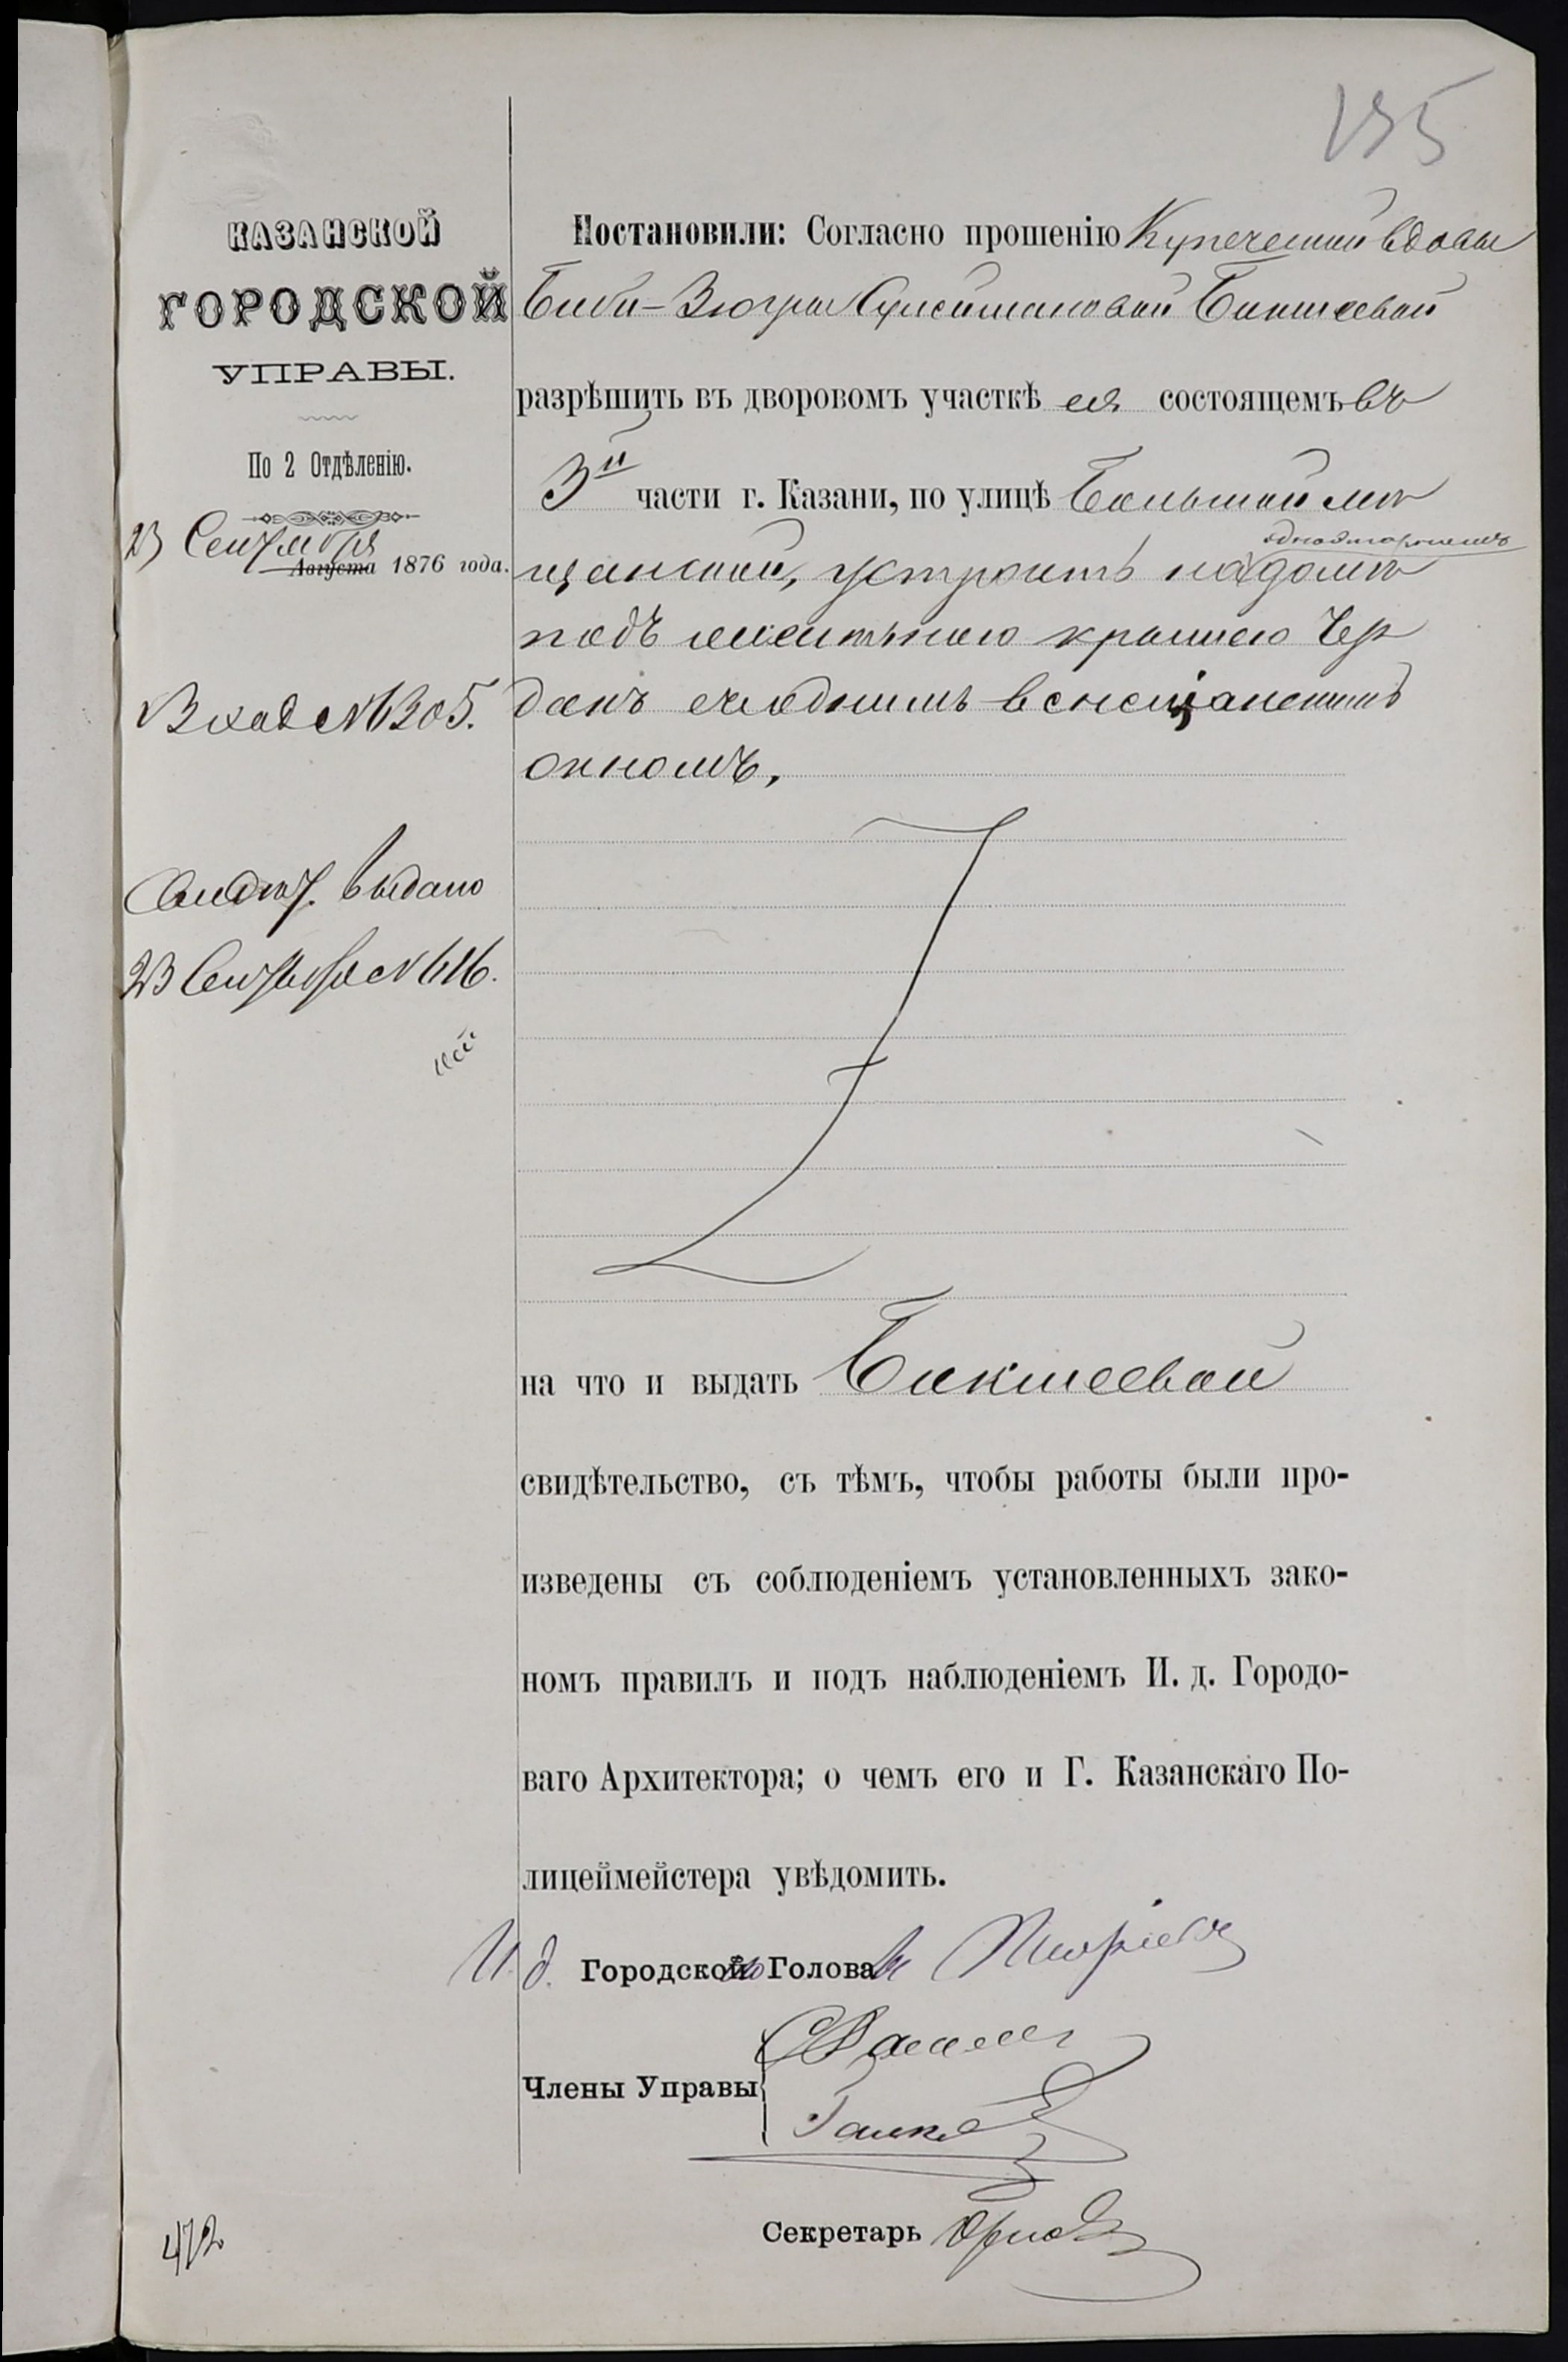 155
КАЗАНСКОЙ
ГОРОДСКОЙ
УПРАВЫ.
По 2 Отдѣленію.
23 Сентября
Августа 1876 года.
Вход № 6305.
Свидѣт. выдано
23 Сентября № 616.
Постановили: Согласно прошенію Купеческой вдовы
Биби-Зюгры Сулеймановой Бикшеевой
разрѣшить въ дворовомъ участкѣ ея состоящемъ въ
3й части г. Казани, по улицѣ Большой мѣ
одноэтажномъ
щанской, устроить на домѣ
подъ крышею чер
дакъ съ однимъ
окномъ,
на что и выдать Бикшеевой
свидѣтельство, съ тѣмъ, чтобы работы были про-
изведены съ соблюденіемъ установленныхъ зако-
номъ правилъ и подъ наблюденіемъ И. д. Городо-
ваго Архитектора; о чемъ его и Г. Казанскаго По-
лицеймейстера увѣдомить.
И. д. Городской Голова
Члены Управы
Секретарь
472